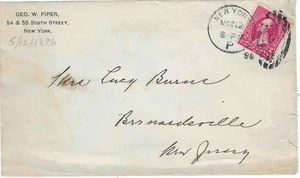 GEO. W. PIPER,
54 & 55 SOUTH STREET,
NEW YORK.
5/12/1896
NEW YORK
MAY 12
P
96
Mrs Lucy Burne
Bernardsville
New Jersey